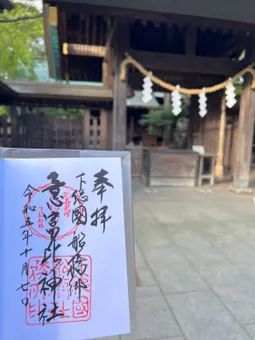 奉拝
下総国 船橋郷
意富比神社
令和五年十月七日